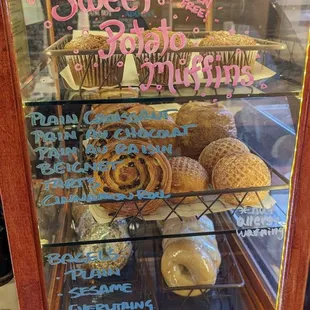 Sweet
Potato
Muffins
FREE
PLAIN CROISSANT
PAIN AU CHOCOLAT
PAIN AU RAISIN
BEIGNET
TART
CINNAMON ROLL
BAGELS
- PLAIN
- SESAME
- EVERYTHING